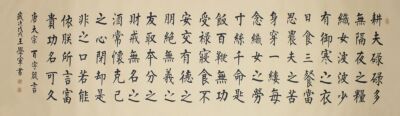 耕夫碌碌多
無隔夜之糧
織女波波少
有御寒之衣
日食三餐當
思農夫之苦
身穿一縷每
念織女之勞
寸絲千命匙
飯百鞭無功
受祿寢食不
安交有德之
朋絕無義之
友取本分之
財戒無名之
酒常懷克己
之心閉却是
非之口若能
依朕所言富
貴功名可久
唐太宗百字箴言
王學軍書